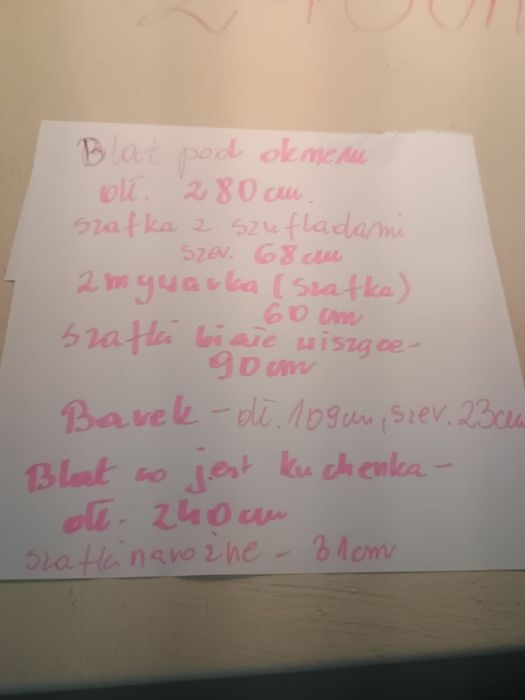 Blat pod oknem
dł. 280cm.
szafka z szufladami
szer. 68cm
zmywarka (szafka)
60 cm
szafki białe wiszące-
90cm
Barek - dł. 109cm, szer. 23cm
Blat co jest kuchenka-
dł. 240cm
szafki narożne - 31cm